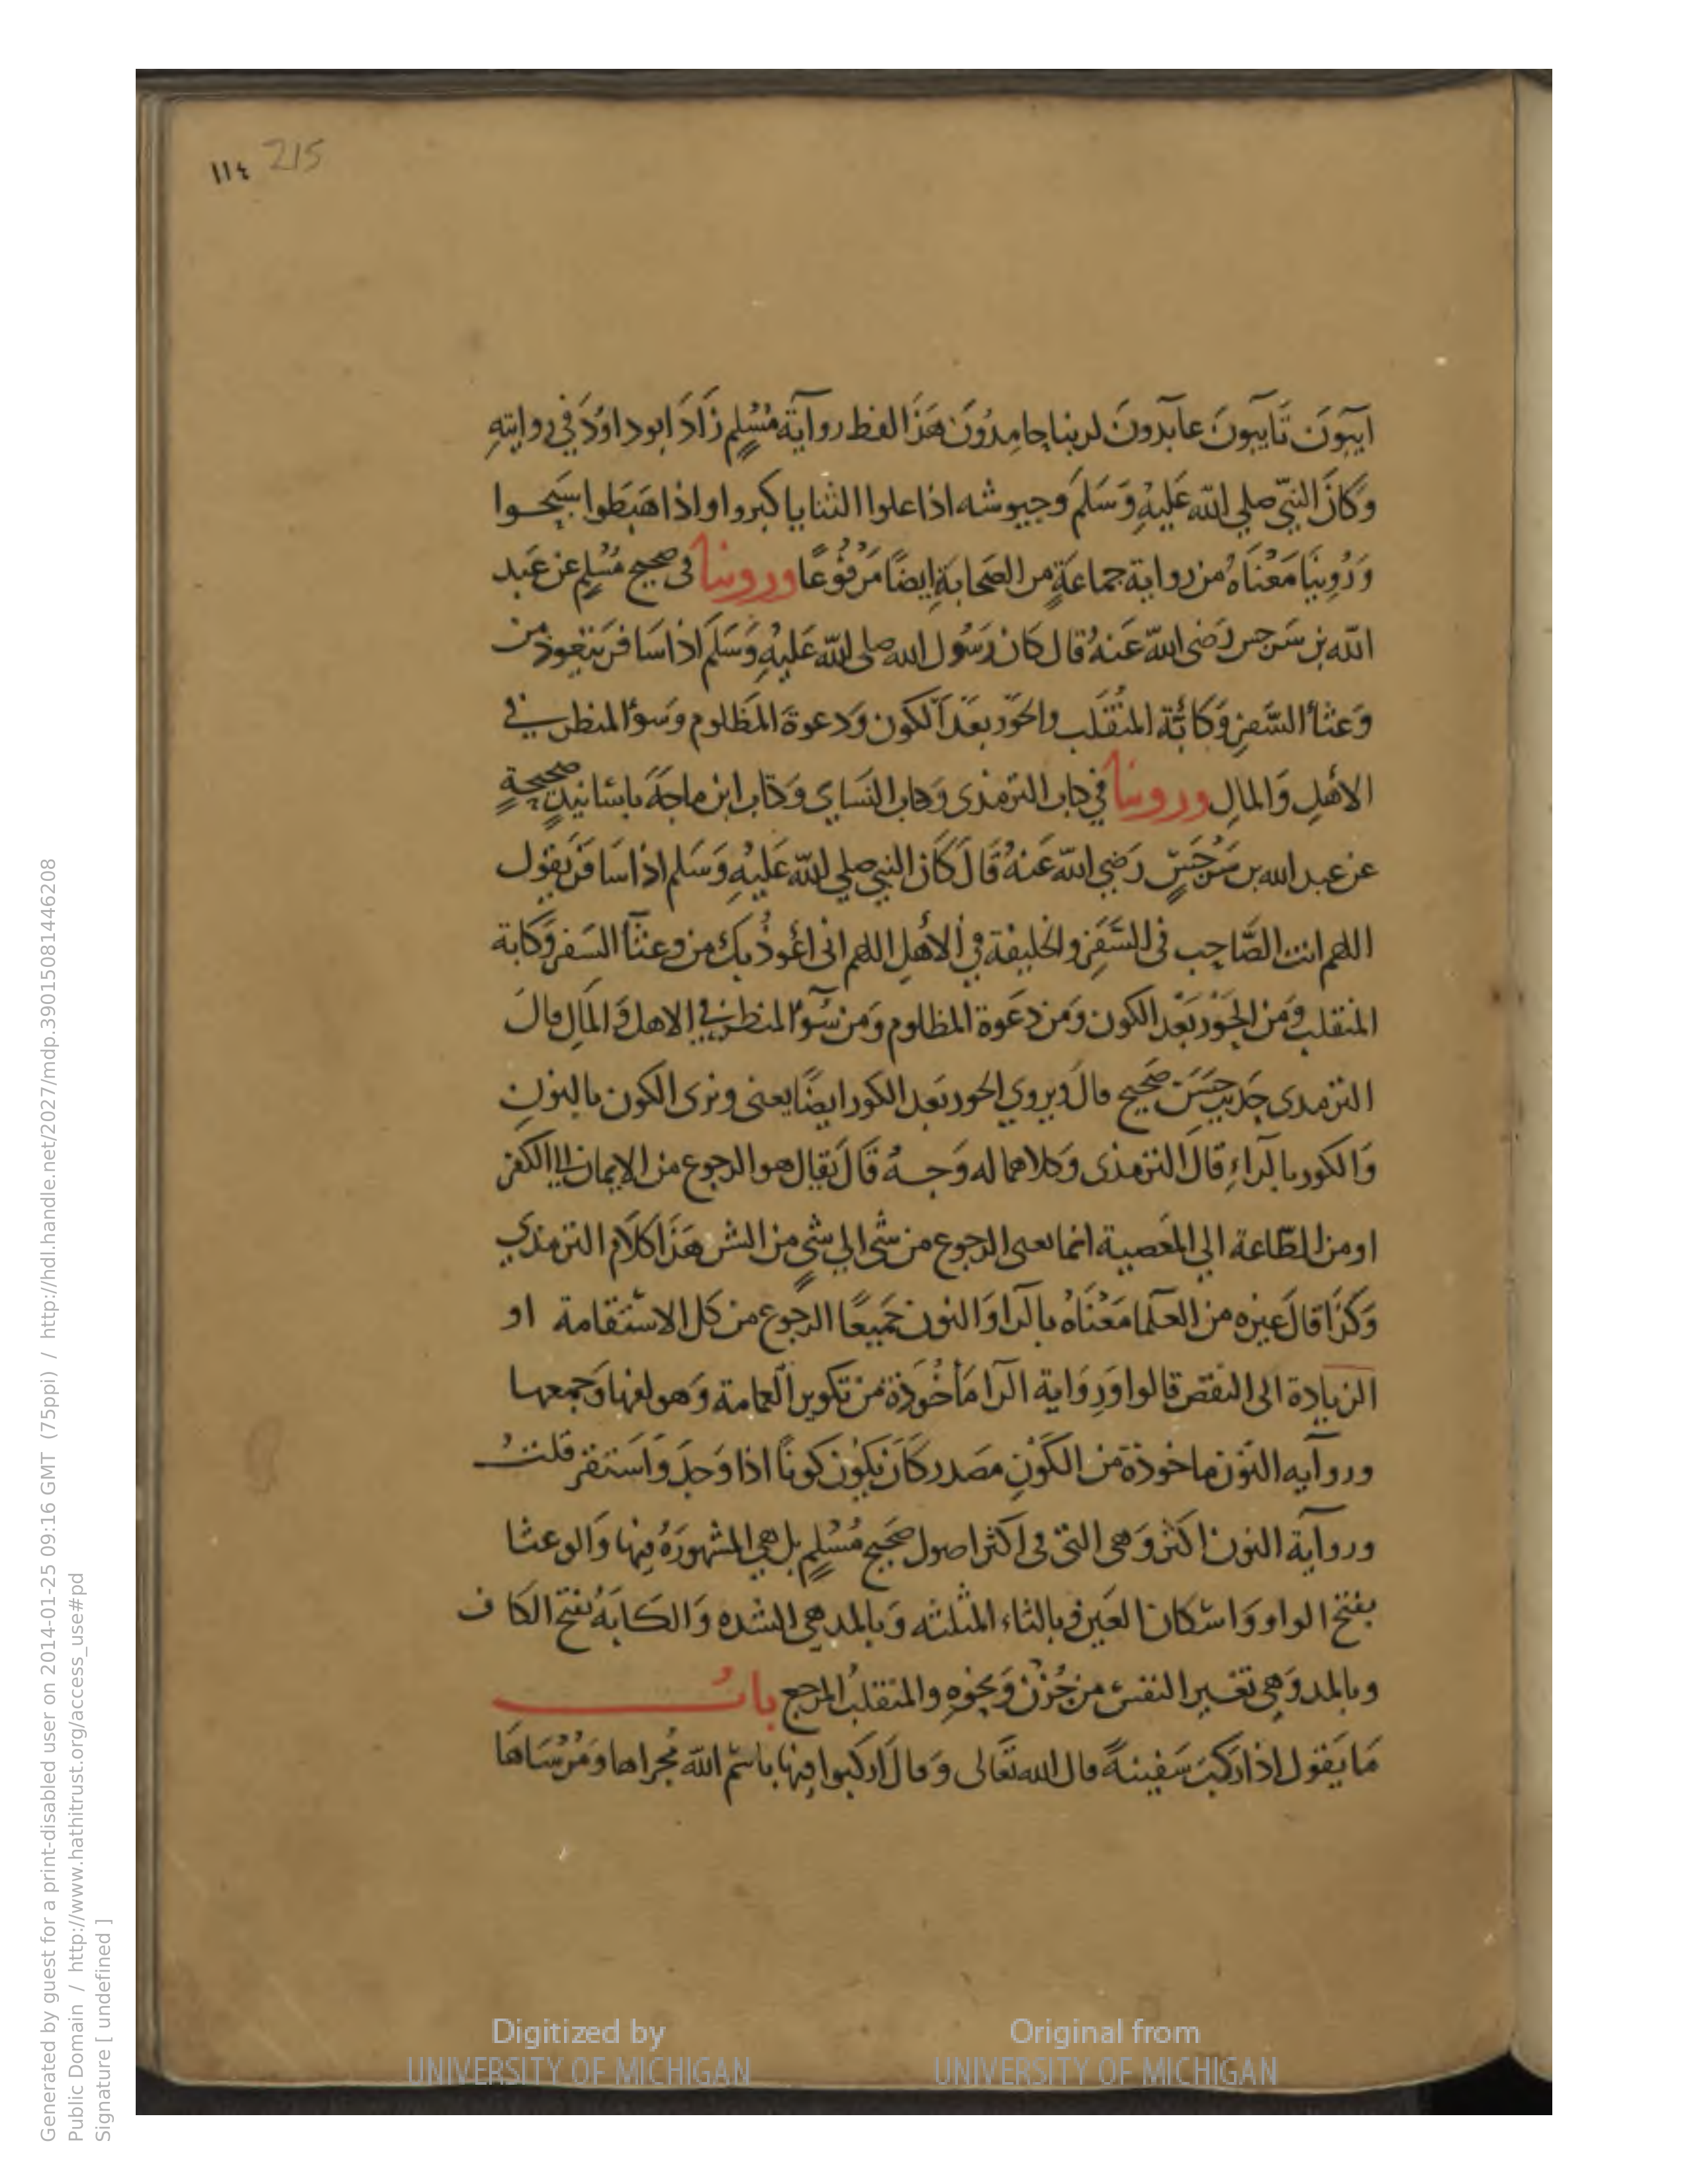 ١١٤ 215
ايبون تايبون عابدون لربنا حامدون هذا لفظ رواية مسلم زاد ابو داود في روايته
وكان النبي صلي الله عليه وسلم وجيوشه اذا علوا الثنايا كبروا واذا هبطوا سبحوا
وروينا معناه من رواية جماعة من الصحابة ايضا مرفوعا وروينا في صحيح مسلم عن عبد
الله بن سرجس رضي الله عنه قال كان رسول الله صلي الله عليه وسلم اذا سافر يتعوذ من
وعثا السفر وكابة المنقلب والحور بعد الكون ودعوة المظلوم وسو المنظر في
الاهل والمال وروينا في كتاب الترمذي وكتاب النساي وكتاب ابن ماجة باسانيد صحيحة
عن عبد الله بن سرجس رضي الله عنه قال كان النبي صلي الله عليه وسلم اذا سافر يقول
اللهم انت الصاحب في السفر والخليفة في الاهل اللهم اني اعوذ بك من وعثا السفر وكابة
المنقلب ومن الحور بعد الكون ومن دعوة المظلوم ومن سو المنظر في الاهل والمال قال
الترمذي حديث حسن صحيح قال ويروي الحور بعد الكور ايضا يعني ونري الكون بالنون
والكور بالراء قال الترمذي وكلاهما له وجه قال يقال هو الرجوع من الايمان الي الكفر
او من الطاعة الي المعصية انما يعني الرجوع من شي الي شي من الشر هذا كلام الترمذي
وكذا قال غيره من العلما معناه بالرا والنون جميعا الرجوع من كل الاستقامة او
الزيادة الي النقص قالوا ورواية الرا ماخوذة من تكوير العمامة وهو لفها وجمعها
ورواية النون ماخوذة من الكون مصدر كان يكون كونا اذا وجد واستقر قلت
ورواية النون اكثر وهي التي في اكثر اصول صحيح مسلم بل هي المشهورة فيها والوعثا
بفتح الواو واسكان العين وبالثاء المثلثه وبالمد هي الشده والكابة بفتح الكاف
وبالمد وهي تغير النفس من حزن ونحوه والمنقلب المرجع باب
ما يقول اذا ركب سفينة قال الله تعالي وقال اركبوا فيها باسم الله مجراها ومرساها
Digitized by
UNIVERSITY OF MICHIGAN
Original from
UNIVERSITY OF MICHIGAN
Generated by guest for a print-disabled user on 2014-01-25 09:16 GMT (75ppi) / http://hdl.handle.net/2027/mdp.39015081446208
Public Domain / http://www.hathitrust.org/access_use#pd
Signature [ undefined ]